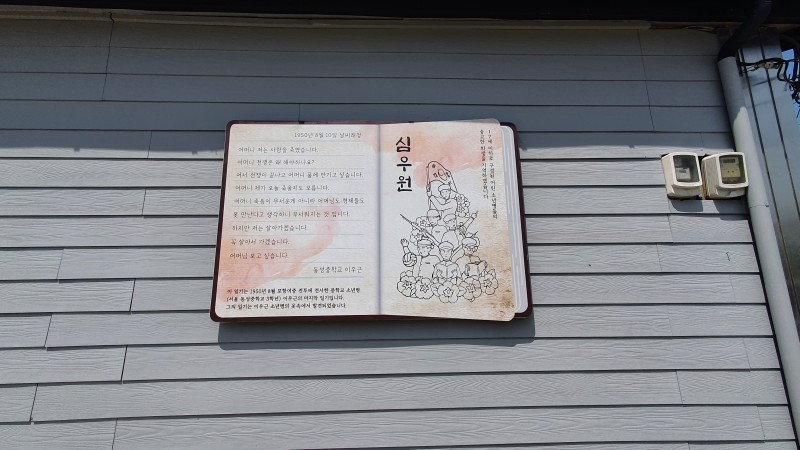 1950년 8월 10일 날씨화창
어머니 저는 사람을 죽였습니다.
어머니 전쟁은 왜 해야하나요?
어서 전쟁이 끝나고 어머니 품에 안기고 싶습니다.
어머니 제가 오늘 죽을지도 모릅니다.
어머니 죽음이 무서운게 아니라 어머님도 형제들도
못 만난다고 생각하니 무서워지는 것 입니다.
하지만 저는 살아가겠습니다.
꼭 살아서 가겠습니다.
어머님 보고 싶습니다.
동성중학교 이우근
이 일기는 1950년 8월 포항여중 전투에 전사한 중학교 소년병
(서울 동성중학교 3학년) 이우근의 마지막 일기입니다.
그의 일기는 이우근 소년병의 옷속에서 발견되었습니다.
심우원
17세 이하로 구성된 어린 소년병들의
숭고한 희생을 기억하겠습니다.